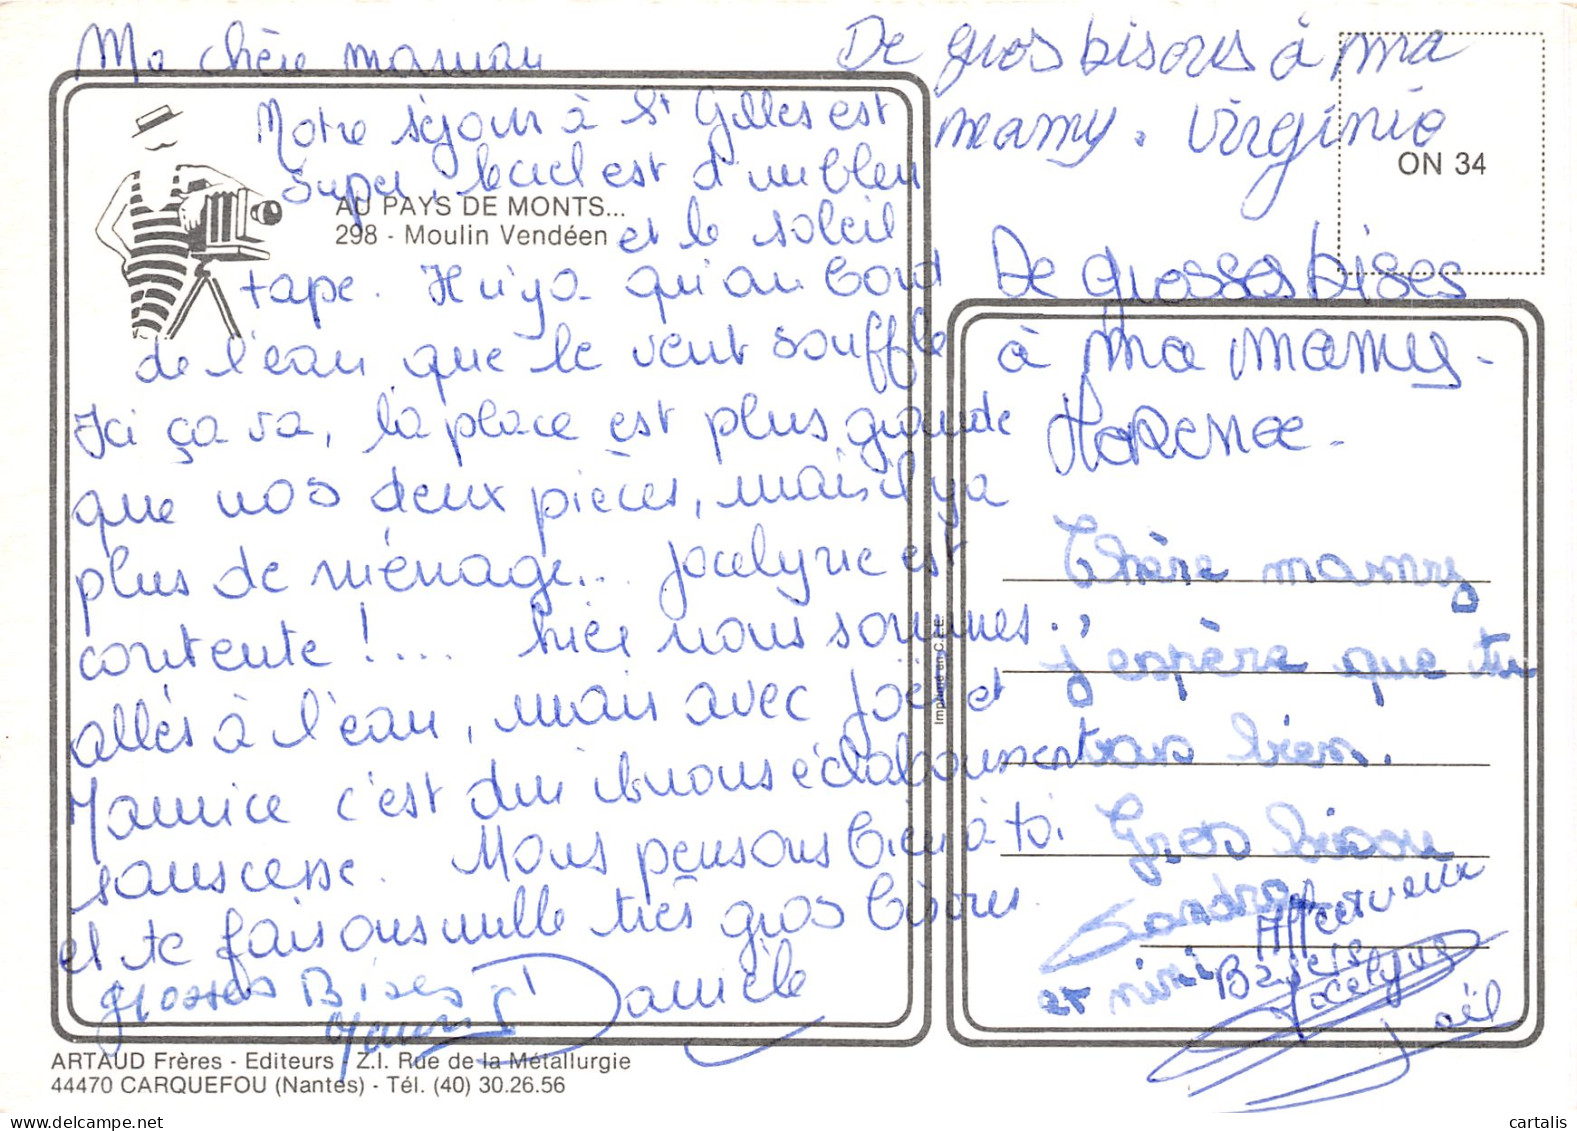 Ma chère maman
Notre séjour à St Gilles est
super, le ciel est d'un bleu
AU PAYS DE MONTS...
298 - Moulin Vendéen
et le soleil
tape. Il n'y a qu'au bord
de l'eau que le vent souffle
Ici ça va, la place est plus grande
que nos deux pièces, mais il y a
plus de ménage... Jocelyne est
contente !.... hier nous sommes
allés à l'eau, mais avec Joël et
Maurice c'est dur ils nous éclaboussent
sans cesse. Nous pensons bien à toi
et te faisons mille très gros bisous
Danièle
grosses Bises
Maurice
De gros bisous à ma
mamy. Virginie
ON 34
De grosses bises
à ma mamy.
Florence.
Chère mamy
j'espère que tu
vas bien.
Gros bisou
Sandra
et mimi
Affectueux
Baisers
Jocelyne
Joël
Imprimé en C.E.E.
ARTAUD Frères - Editeurs - Z.I. Rue de la Métallurgie
44470 CARQUEFOU (Nantes) - Tél. (40) 30.26.56
cartalis